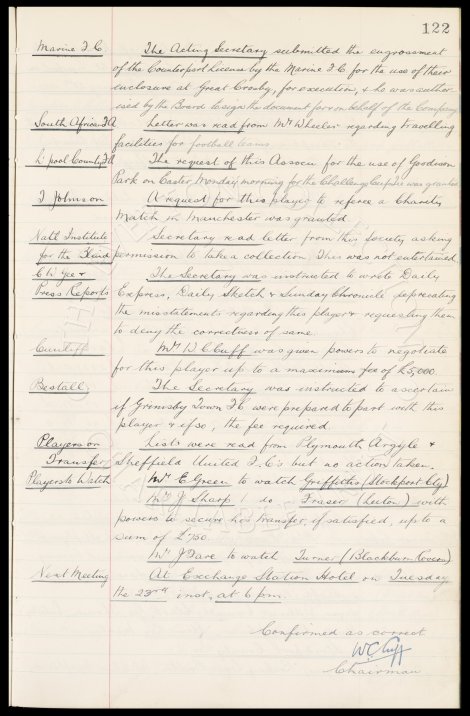 122
Marine F.C. The Acting Secretary submitted the engrossment
of the Counterpart License by the Marine F.C. for the use of their
enclosure at Great Crosby, for execution, & he was author-
ised by the Board to sign the document for & on behalf of the Company
South Africa F.A. Letter was read from Mr Wheeler regarding travelling
facilities for football teams.
L'pool County F.A. The request of this Assocn for the use of Goodison
Park on Easter Monday morning for the Challenge Cup tie was granted
T Johnson A request for this player to referee a Charity
Match in Manchester was granted
Natl Institute Secretary read letter from this Society asking
for the Blind permission to take a collection. This was not entertained.
The Secretary was instructed to write Daily
Press Reports Express, Daily Sketch & Sunday Chronicle deprecating
the misstatements regarding this player & requesting them
to deny the correctness of same.
Cunliffe Mr W C Cuff was given powers to negotiate
for this player up to a maximum fee of £5,000.
Bestall. The Secretary was instructed to ascertain
if Grimsby Town F.C. were prepared to part with this
player & if so, the fee required.
Players on Lists were read from Plymouth Argyle &
Transfer Sheffield United F.C's but no action taken.
Players to Watch Mr E. Green to watch Griffiths (Stockport Cty)
Mr J Sharp do Fraser (Luton) with
powers to secure his transfer, if satisfied, up to a
sum of £750.
Mr J Fare to watch Turner (Blackburn Rovers)
Next Meeting At Exchange Station Hotel on Tuesday
the inst, at 6 pm.
Confirmed as correct
W C Cuff
Chairman